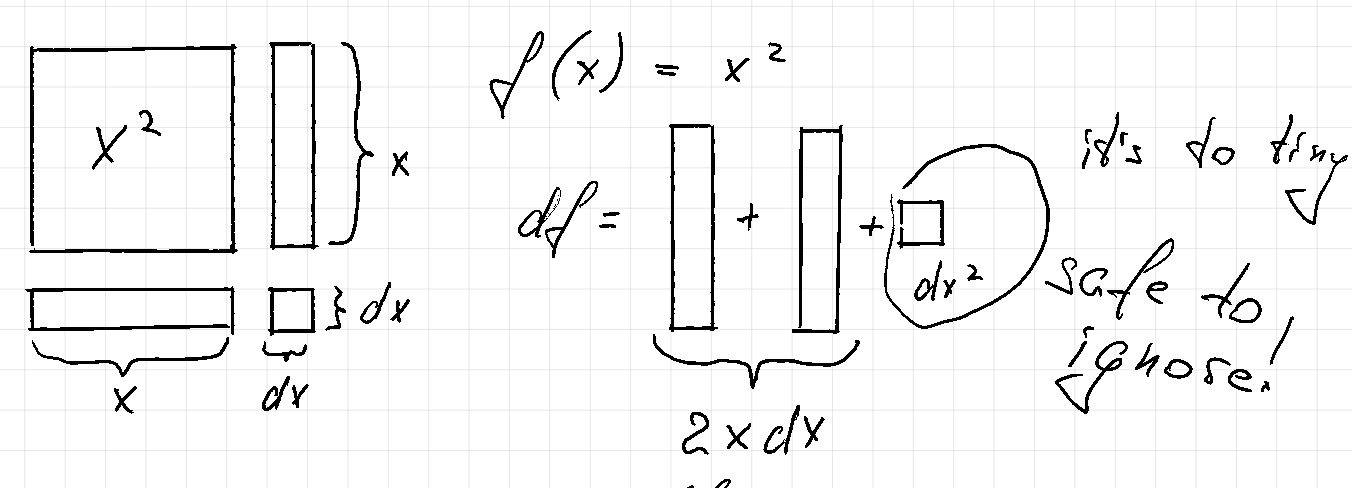 x²
x
dx
x
dx
f(x) = x²
df = + + dx²
2xdx
it's to tiny
safe to
ignore!